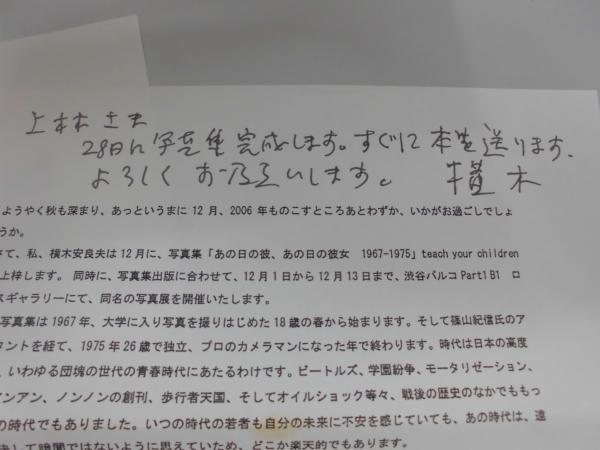 上林さま
28日に写真集完成します。すぐに本を送ります、
よろしくお願いします。 横木
ようやく秋も深まり、あっというまに 12 月、2006 年ものこすところあとわずか、いかがお過ごしでしょ
うか。
さて、私、横木安良夫は12月に、写真集「あの日の彼、あの日の彼女 1967-1975」teach your children
上梓します。 同時に、写真集出版に合わせて、12 月 1 日から 12 月 13 日まで、渋谷パルコ Part1 B1 ロ
スギャラリーにて、同名の写真展を開催いたします。
写真集は 1967 年、大学に入り写真を撮りはじめた 18 歳の春から始まります。そして篠山紀信氏のア
タントを経て、1975 年 26 歳で独立、プロのカメラマンになった年で終わります。時代は日本の高度
、いわゆる団塊の世代の青春時代にあたるわけです。ビートルズ、学園紛争、モータリゼーション、
アンアン、ノンノンの創刊、歩行者天国、そしてオイルショック等々、戦後の歴史のなかでももっ
の時代でもありました。いつの時代の若者も自分の未来に不安を感じていても、あの時代は、遠
決して暗闇ではないように思えていたため、どこか楽天的でもあります。